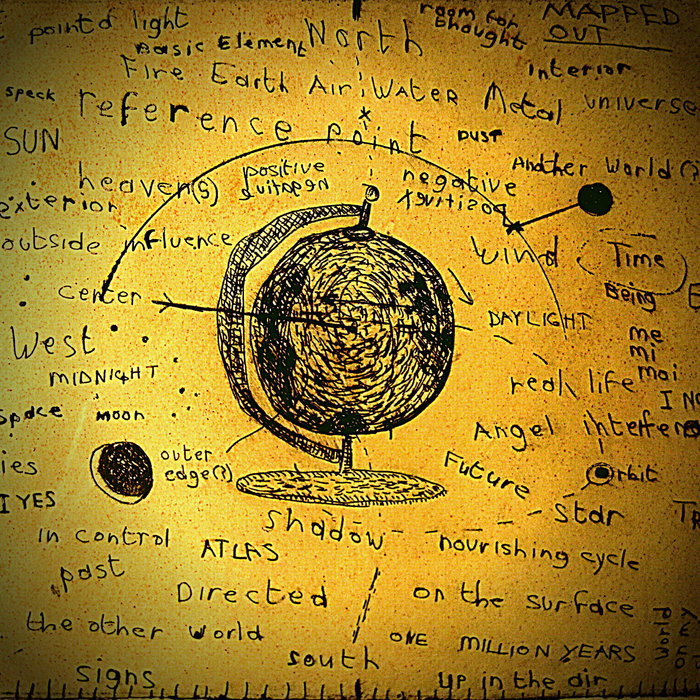 point of light
Basic Element
North
room for thought
MAPPED
OUT
Fire Earth Air Water Metal universe
Interior
speck
reference point
DUST
SUN
Another World(?)
heaven(s)
positive
negative
negative
positive
exterior
outside influence
Wind
Time
Being
Center
DAYLIGHT
West
me
mi
moi
MIDNIGHT
real life
Space
MOON
Angel
outer
edge(?)
Future
Orbit
ies
I YES
Star
Shadow
in control
ATLAS
nourishing cycle
past
Directed
on the surface
the other world
ONE MILLION YEARS
south
signs
up in the air
world
on my